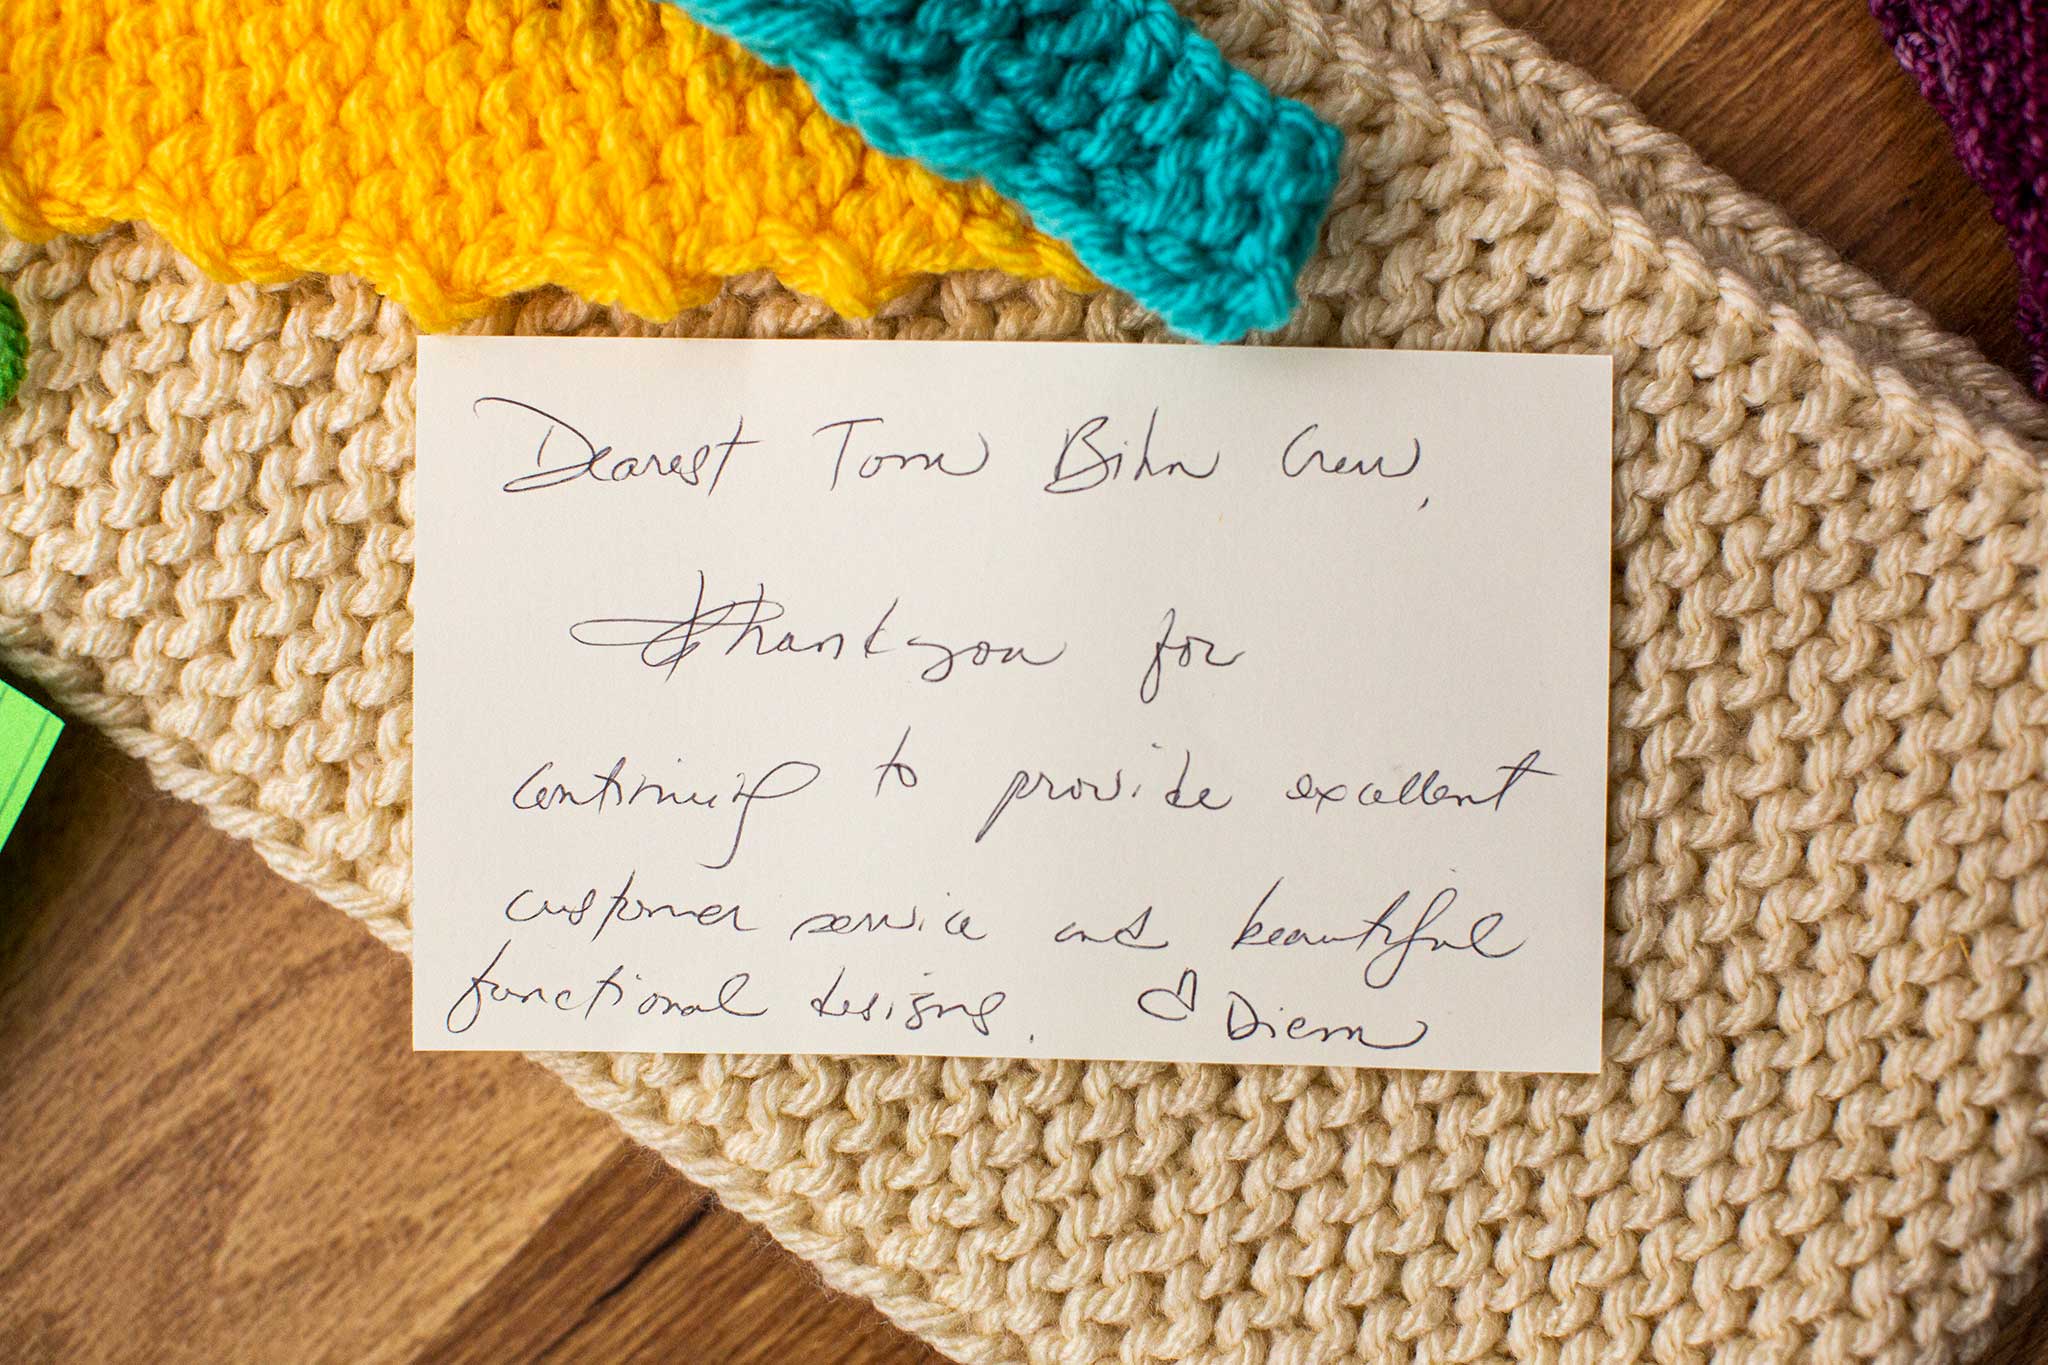 Dearest Tom Bihn Crew,
Thank you for
continuing to provide excellent
customer service and beautiful
functional designs. ♡ Diem